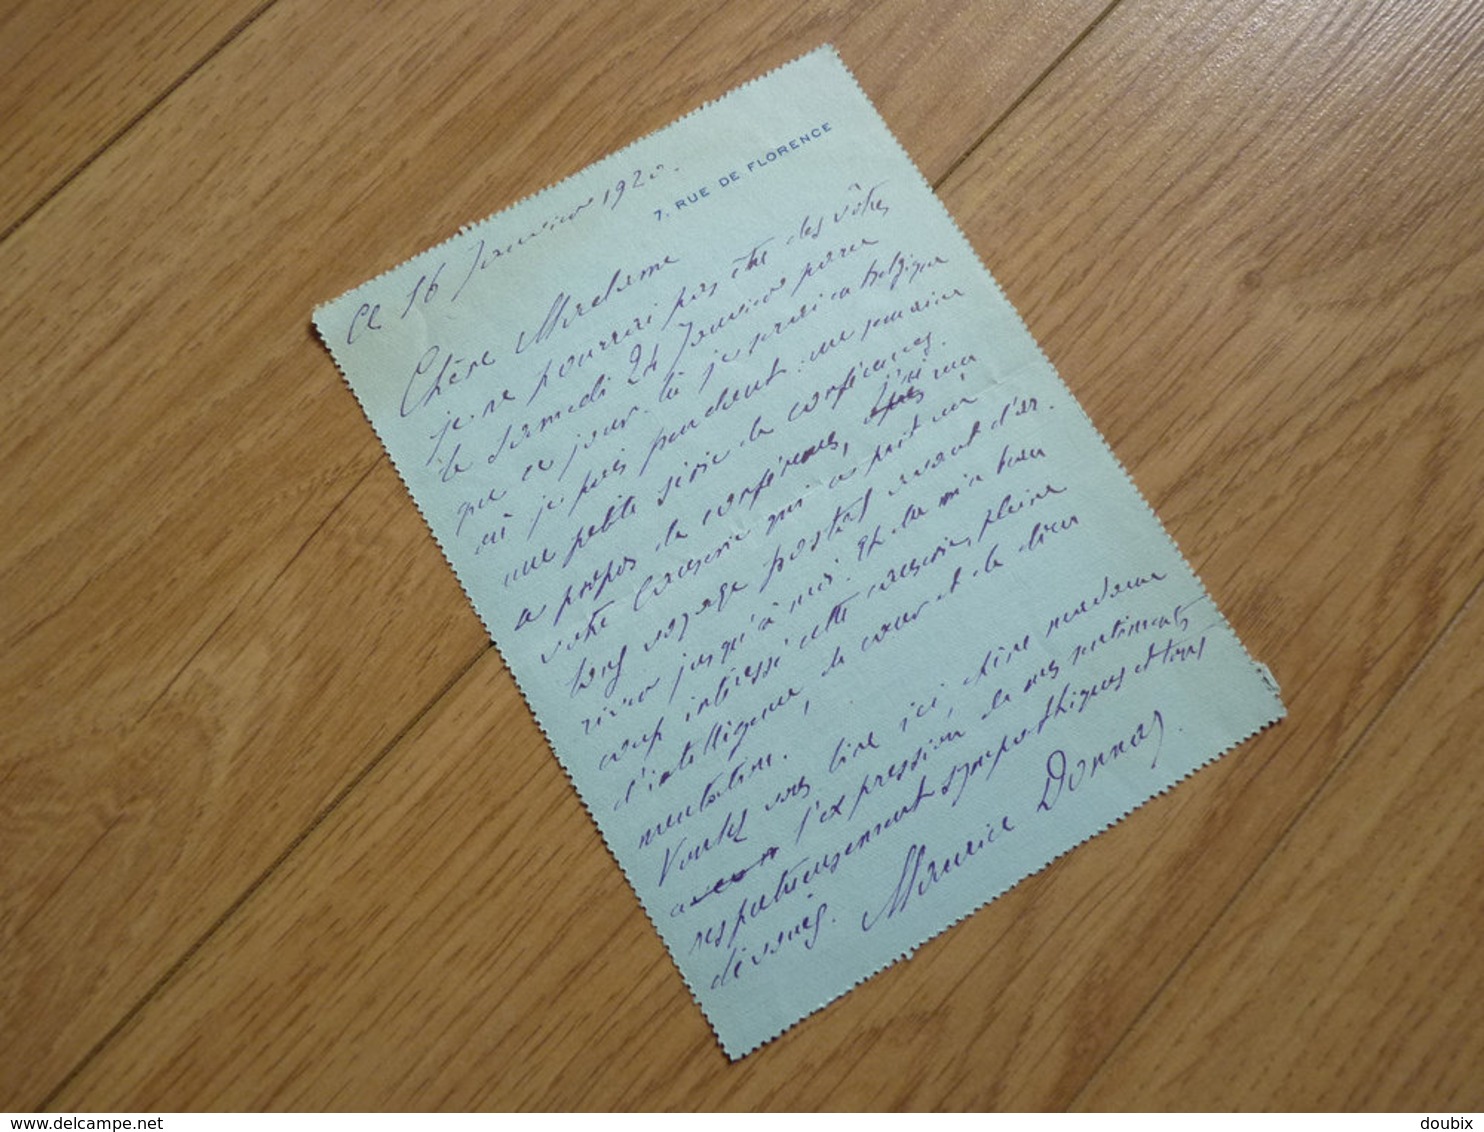 7, RUE DE FLORENCE
Ce 16 Janvier 1920.
Chère Madame
je ne pourrai pas être des vôtres
le Samedi 24 Janvier parce
que ce jour-là je serai en Belgique
où je fais pendant une semaine
une petite série de conférences.
a propos de conférences, j'ai reçu
votre causerie qui a fait un
long voyage postal avant d'ar-
river jusqu'à moi. Elle m'a beau
coup intéressé cette causerie, pleine
d'intelligence, de cœur et de
mentation.
Voulez vous lire ici, chère madame
l'expression de mes sentiments
respectueusement sympathiques et tous
dévoués.
Maurice Donnay.
delcampe.net
doubix